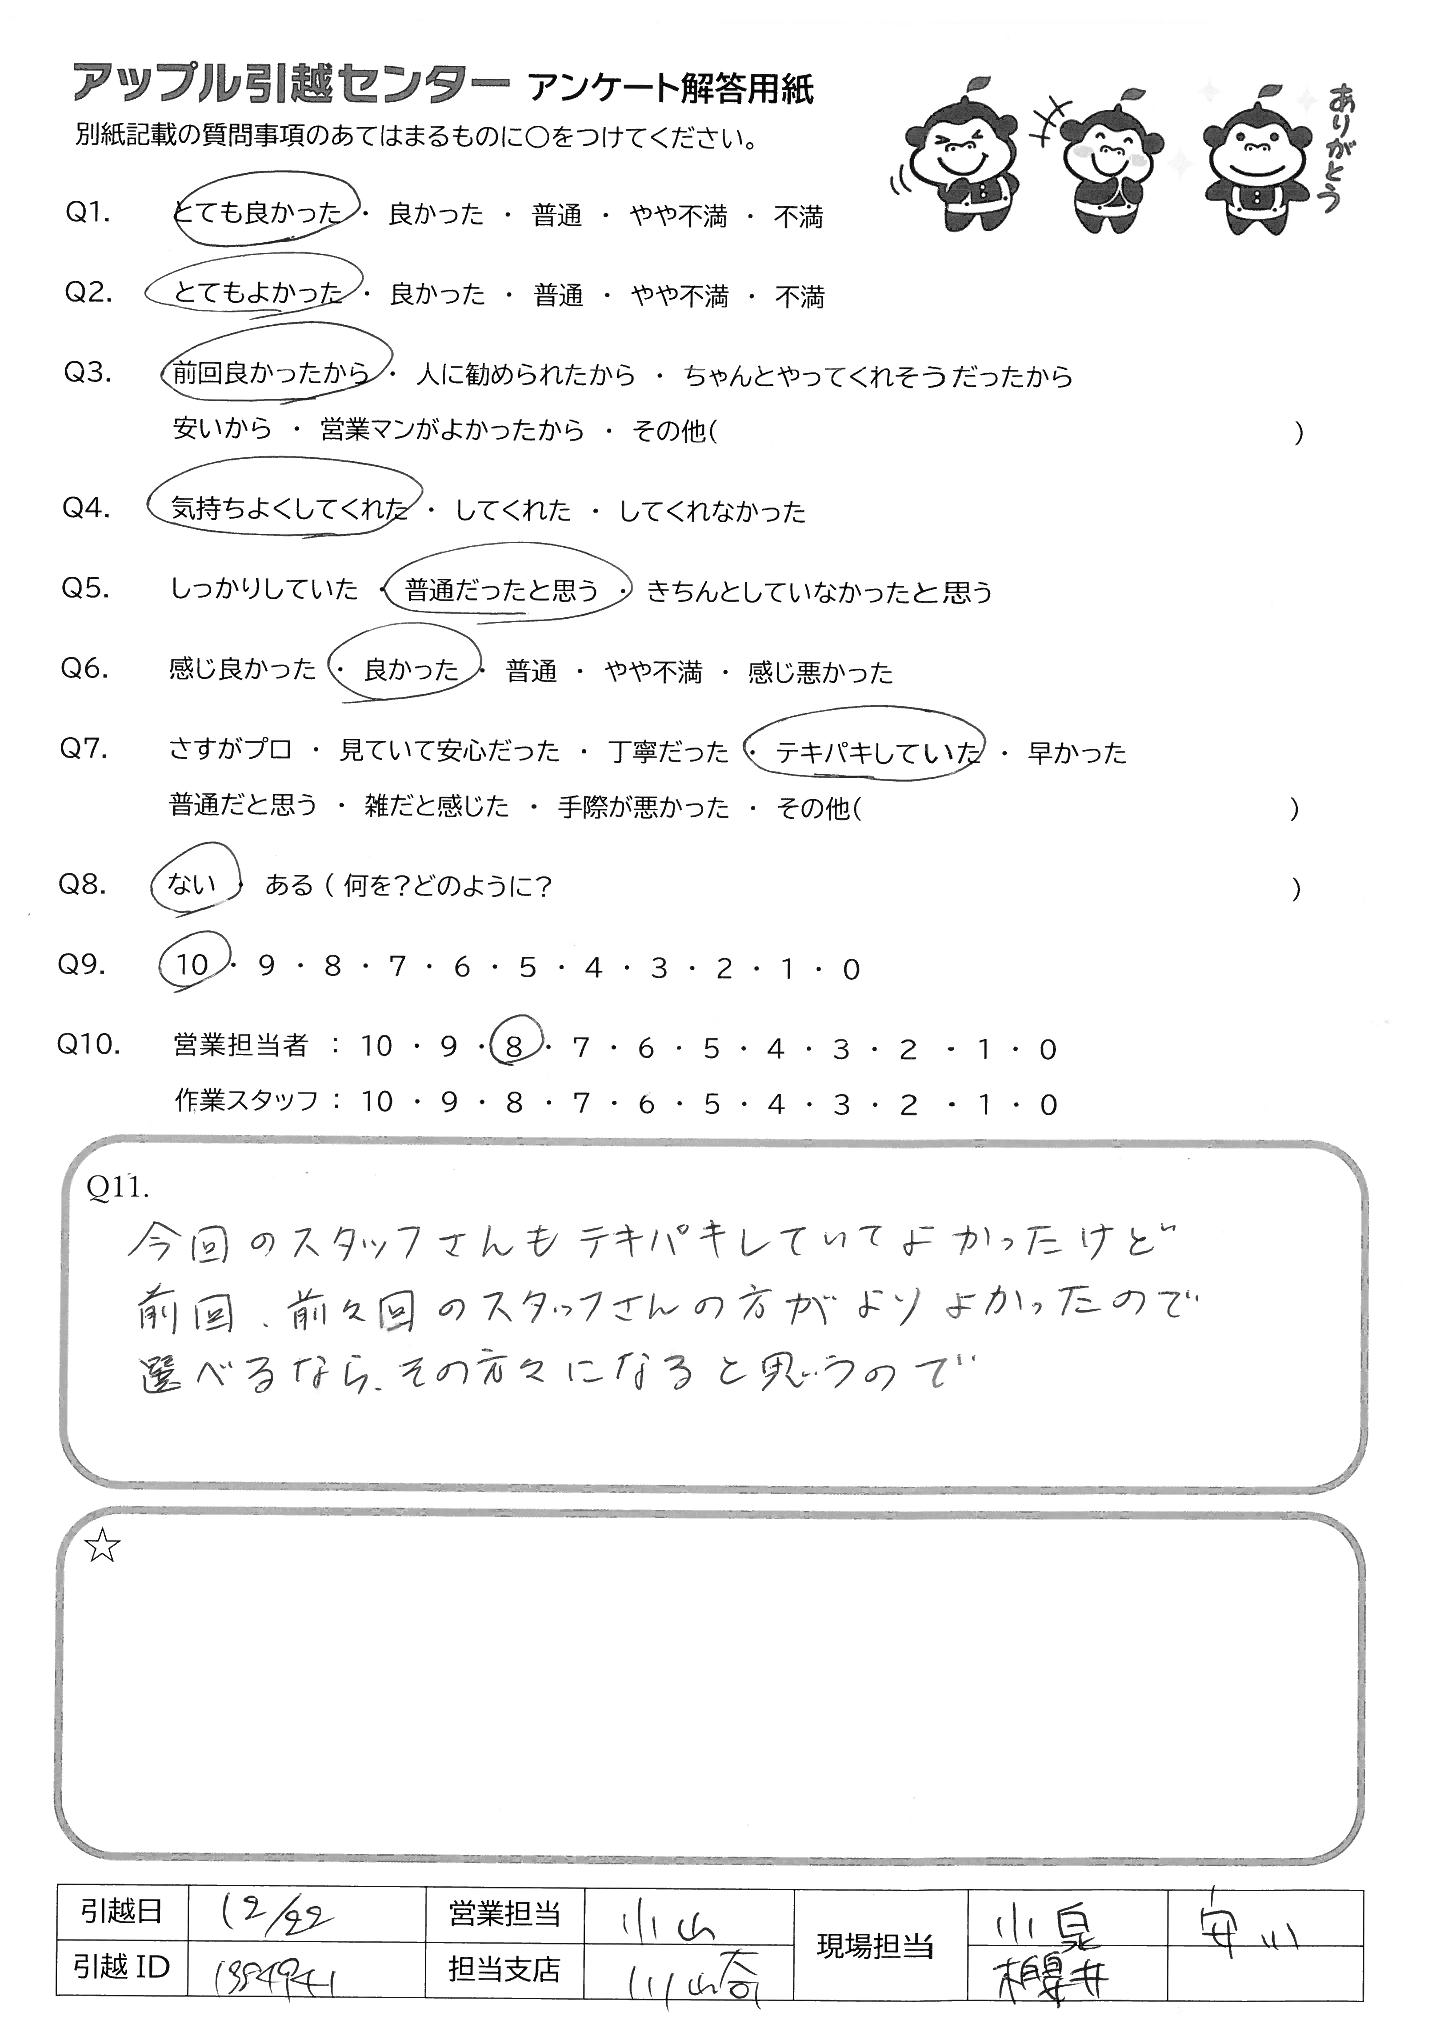 アップル引越センター アンケート解答用紙
別紙記載の質問事項のあてはまるものに○をつけてください。
ありがとう
Q1. とても良かった ・ 良かった ・ 普通 ・ やや不満 ・ 不満
Q2. とてもよかった ・ 良かった ・ 普通 ・ やや不満 ・ 不満
Q3. 前回良かったから ・ 人に勧められたから ・ ちゃんとやってくれそうだったから
安いから ・ 営業マンがよかったから ・ その他( )
Q4. 気持ちよくしてくれた ・ してくれた ・ してくれなかった
Q5. しっかりしていた ・ 普通だったと思う ・ きちんとしていなかったと思う
Q6. 感じ良かった ・ 良かった ・ 普通 ・ やや不満 ・ 感じ悪かった
Q7. さすがプロ ・ 見ていて安心だった ・ 丁寧だった ・ テキパキしていた ・ 早かった
普通だと思う ・ 雑だと感じた ・ 手際が悪かった ・ その他( )
Q8. ない ・ ある ( 何を?どのように? )
Q9. 10 ・ 9 ・ 8 ・ 7 ・ 6 ・ 5 ・ 4 ・ 3 ・ 2 ・ 1 ・ 0
Q10. 営業担当者 : 10 ・ 9 ・ 8 ・ 7 ・ 6 ・ 5 ・ 4 ・ 3 ・ 2 ・ 1 ・ 0
作業スタッフ : 10 ・ 9 ・ 8 ・ 7 ・ 6 ・ 5 ・ 4 ・ 3 ・ 2 ・ 1 ・ 0
Q11.
今回のスタッフさんもテキパキしていてよかったけど
前回、前々回のスタッフさんの方がよりよかったので
選べるなら、その方々になると思うので
☆
引越日 12/22 営業担当 小山 現場担当 小泉 安川
引越ID 担当支店 川崎 櫻井